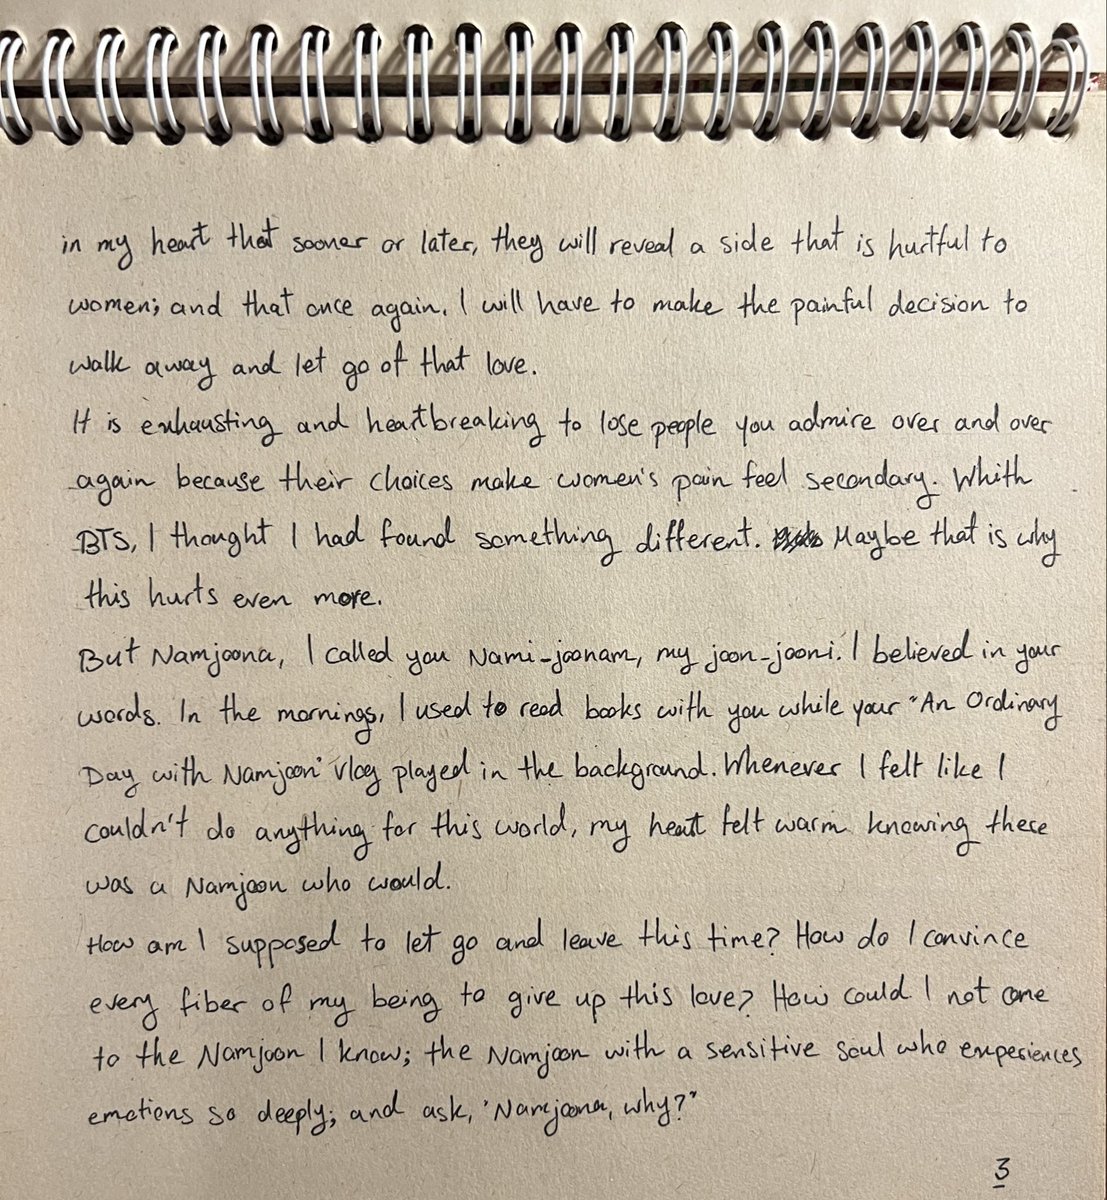 in my heart that sooner or later, they will reveal a side that is hurtful to
women; and that once again, I will have to make the painful decision to
walk away and let go of that love.
It is exhausting and heartbreaking to lose people you admire over and over
again because their choices make women's pain feel secondary. Whith
BTS, I thought I had found something different. Maybe that is why
this hurts even more.
But Namjoona, I called you Nami-joonam, my joon-jooni. I believed in your
words. In the mornings, I used to read books with you while your "An Ordinary
Day with Namjoon" vlog played in the background. Whenever I felt like I
couldn't do anything for this world, my heart felt warm knowing there
was a Namjoon who would.
How am I supposed to let go and leave this time? How do I convince
every fiber of my being to give up this love? How could I not come
to the Namjoon I know; the Namjoon with a sensitive soul who experiences
emotions so deeply; and ask, "Namjoona, why?"
3